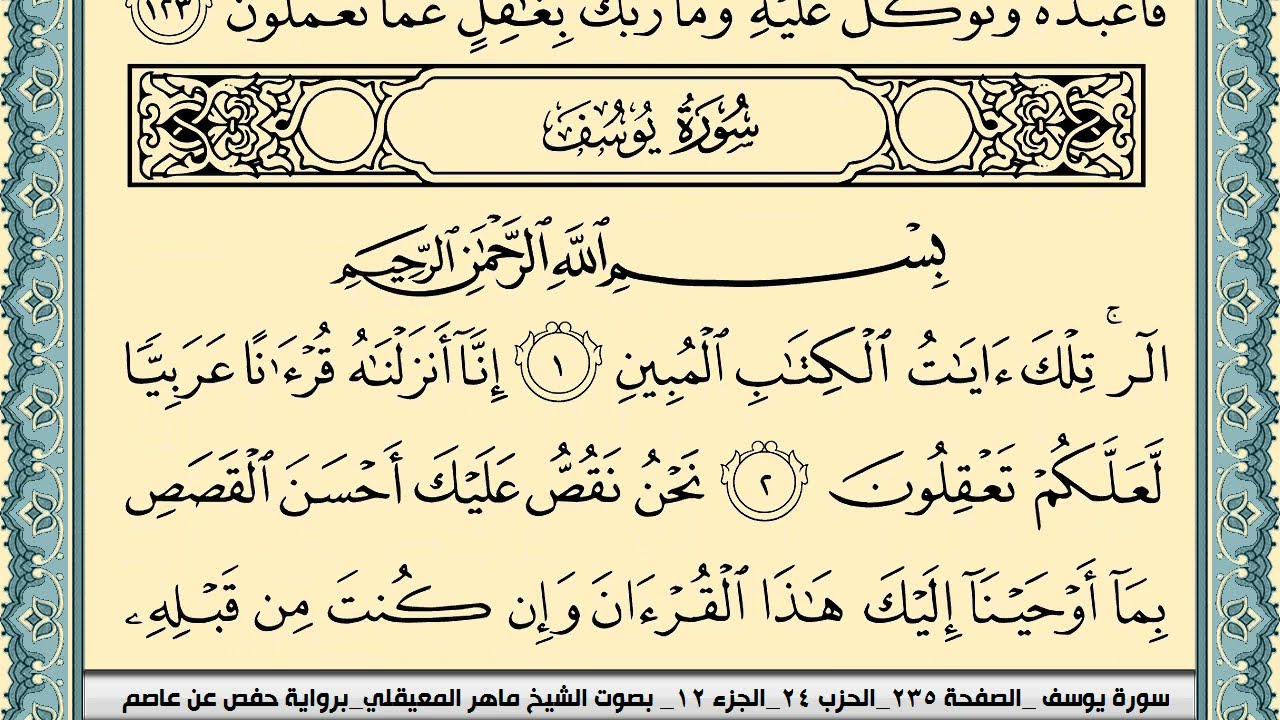 فَاعْبُدْهُ وَتَوَكَّلْ عَلَيْهِ وَمَا رَبُّكَ بِغَٰفِلٍ عَمَّا تَعْمَلُونَ ١٢٣
سُورَةُ يُوسُفَ
بِسْمِ ٱللَّهِ ٱلرَّحْمَٰنِ ٱلرَّحِيمِ
الٓر ۚ تِلْكَ ءَايَٰتُ ٱلْكِتَٰبِ ٱلْمُبِينِ ١ إِنَّآ أَنزَلْنَٰهُ قُرْءَٰنًا عَرَبِيًّا
لَّعَلَّكُمْ تَعْقِلُونَ ٢ نَحْنُ نَقُصُّ عَلَيْكَ أَحْسَنَ ٱلْقَصَصِ
بِمَآ أَوْحَيْنَآ إِلَيْكَ هَٰذَا ٱلْقُرْءَانَ وَإِن كُنتَ مِن قَبْلِهِۦ
سورة يوسف _الصفحة ٢٣٥_الحزب ٢٤_الجزء ١٢_ بصوت الشيخ ماهر المعيقلي_برواية حفص عن عاصم